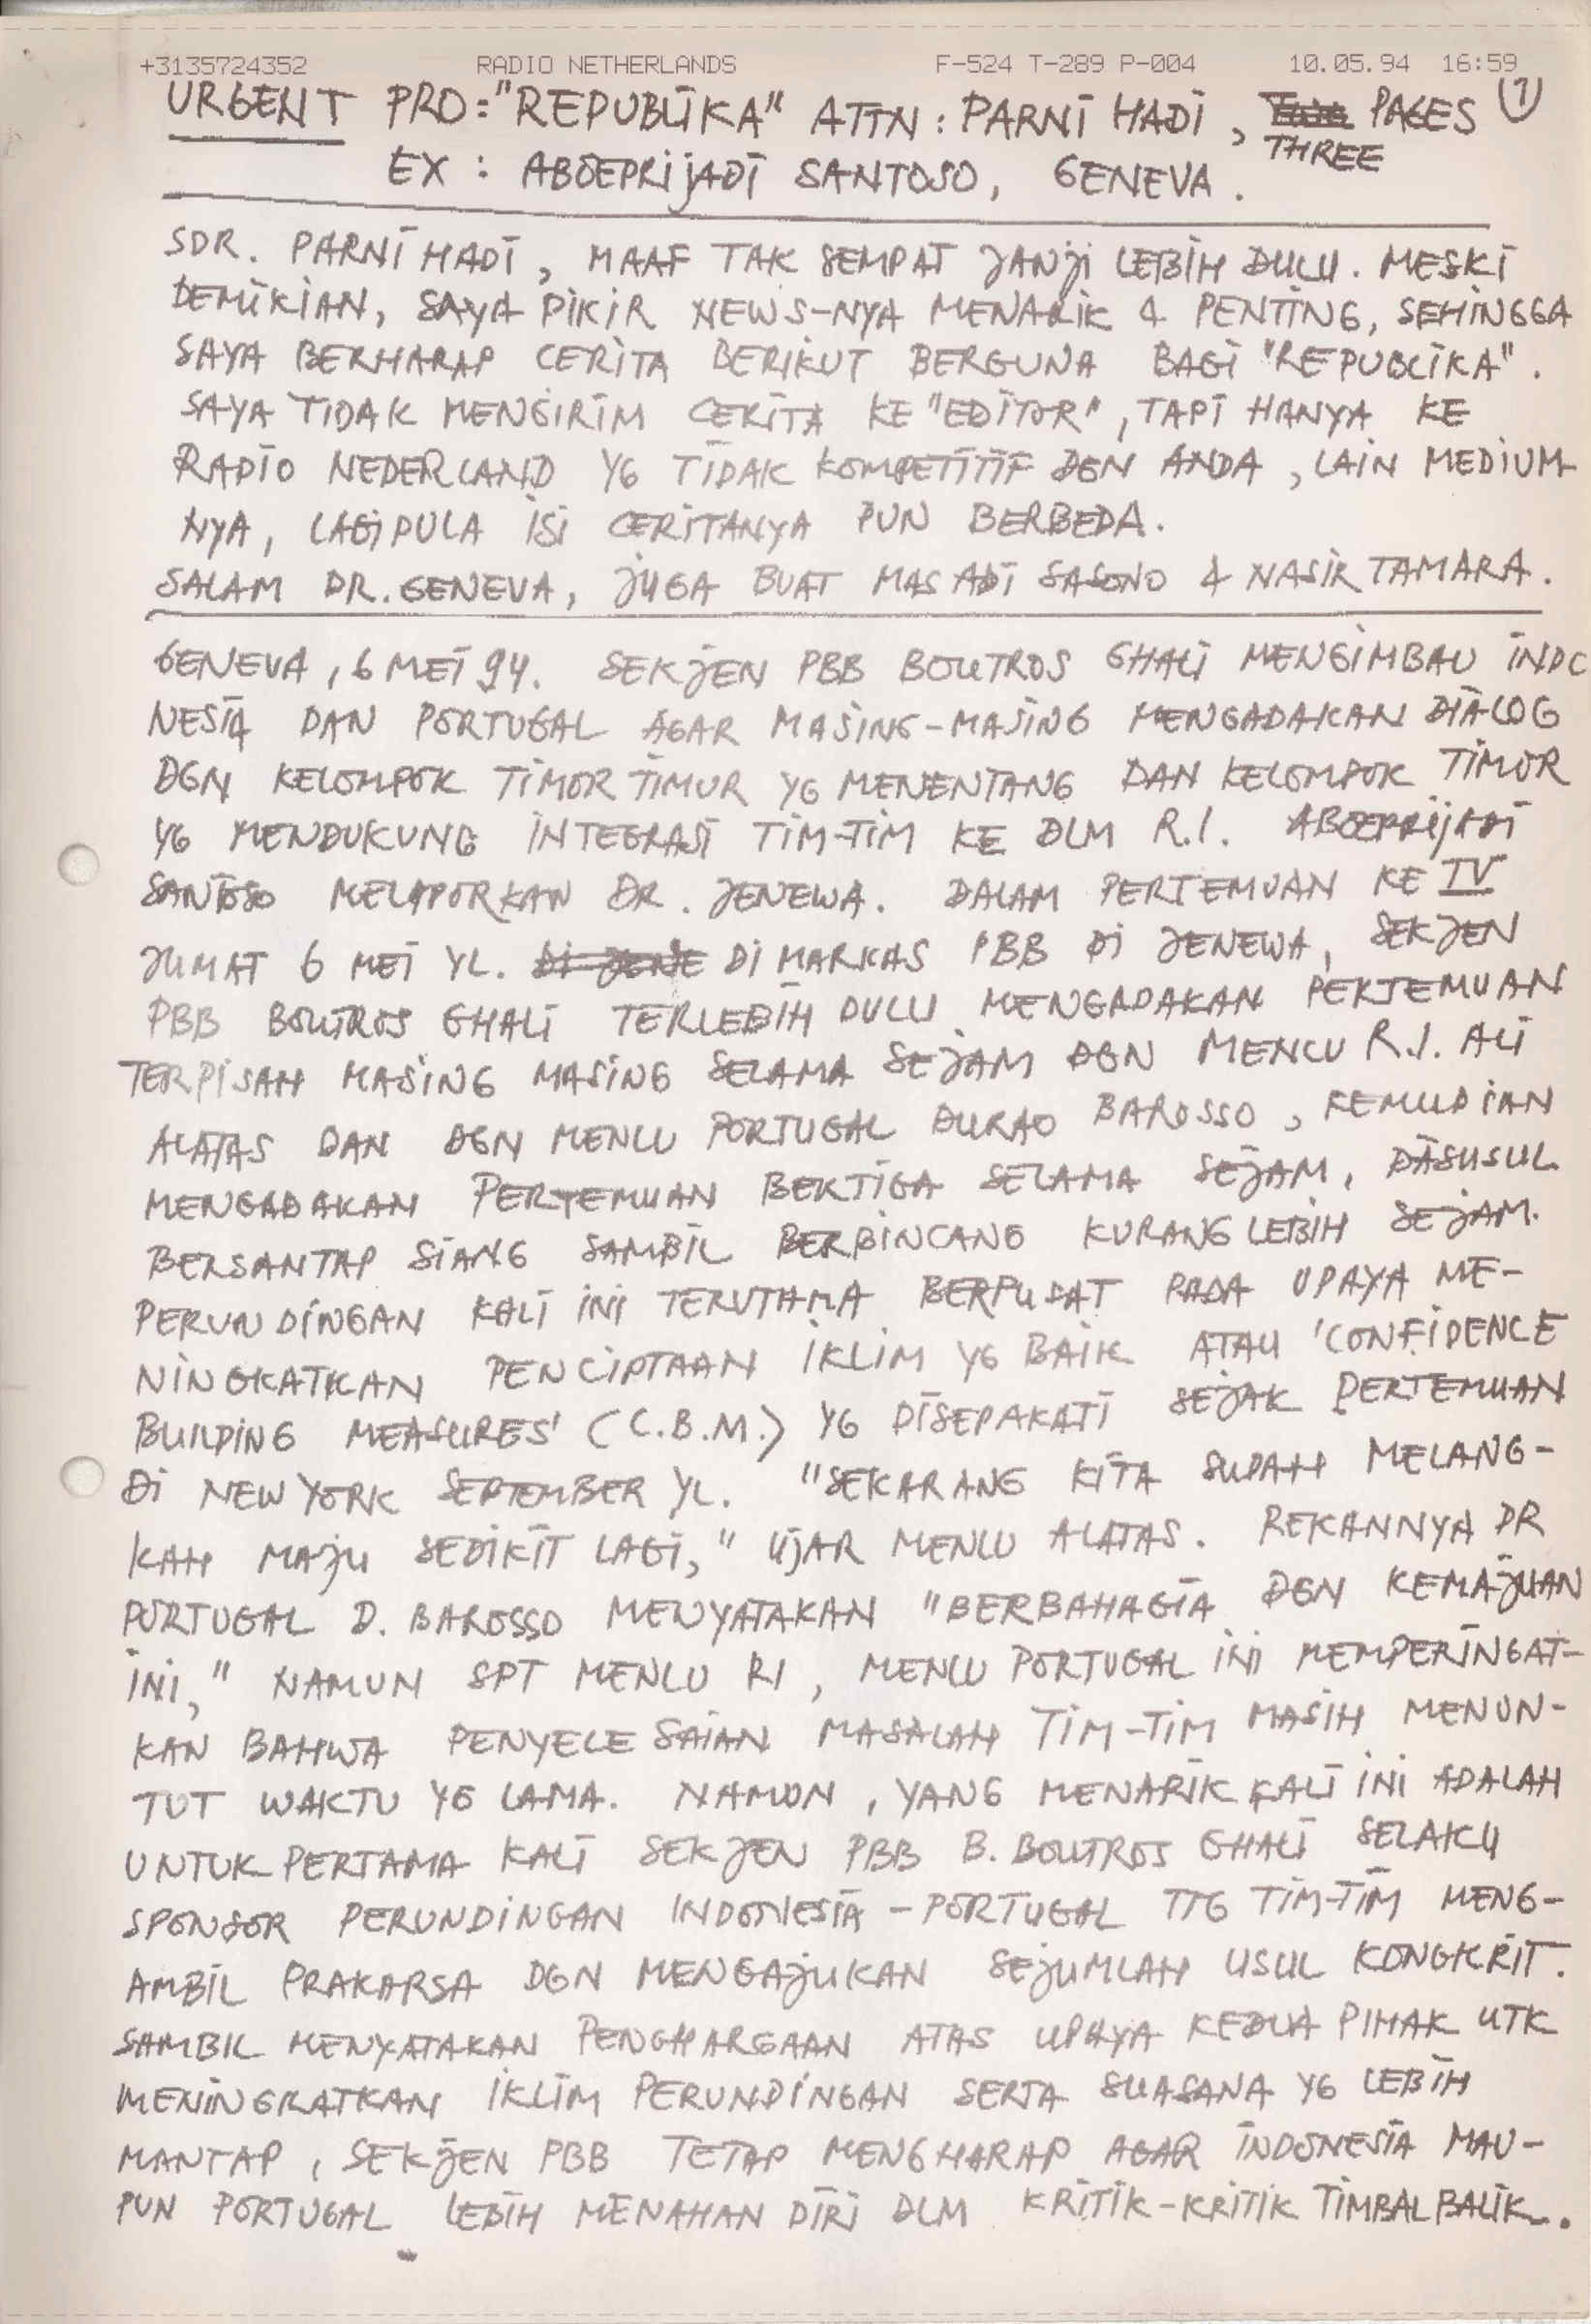 +3135724352 RADIO NETHERLANDS F-524 T-289 P-004 10.05.94 16:59
URGENT PRO: "REPUBLIKA" ATTN: PARNI HADI, PAGES 1
THREE
EX : ABOEPRIJADI SANTOSO, GENEVA.
SDR. PARNI HADI, MAAF TAK SEMPAT JANJI LEBIH DULU. MESKI
DEMIKIAN, SAYA PIKIR NEWS-NYA MENARIK & PENTING, SEHINGGA
SAYA BERHARAP CERITA BERIKUT BERGUNA BAGI "REPUBLIKA".
SAYA TIDAK MENGIRIM CERITA KE "EDITOR", TAPI HANYA KE
RADIO NEDERLAND YG TIDAK KOMPETITIF DGN ANDA, LAIN MEDIUM-
NYA, LAGIPULA ISI CERITANYA PUN BERBEDA.
SALAM DR. GENEVA, JUGA BUAT MAS ADI SASONO & NASIR TAMARA.
GENEVA, 6 MEI 94. SEKJEN PBB BOUTROS GHALI MENGIMBAU INDO
NESIA DAN PORTUGAL AGAR MASING-MASING MENGADAKAN DIALOG
DGN KELOMPOK TIMOR TIMUR YG MENENTANG DAN KELOMPOK TIMOR
YG MENDUKUNG INTEGRASI TIM-TIM KE DLM R.I. ABOEPRIJADI
SANTOSO MELAPORKAN DR. JENEWA. DALAM PERTEMUAN KE IV
JUMAT 6 MEI YL. DI JENE DI MARKAS PBB DI JENEWA, SEKJEN
PBB BOUTROS GHALI TERLEBIH DULU MENGADAKAN PERTEMUAN
TERPISAH MASING MASING SELAMA SEJAM DGN MENLU R.I. ALI
ALATAS DAN DGN MENLU PORTUGAL DURAO BAROSSO, KEMUDIAN
MENGADAKAN PERTEMUAN BERTIGA SELAMA SEJAM, DISUSUL
BERSANTAP SIANG SAMBIL BERBINCANG KURANG LEBIH SEJAM.
PERUNDINGAN KALI INI TERUTAMA BERPUSAT PADA UPAYA ME-
NINGKATKAN PENCIPTAAN IKLIM YG BAIK ATAU 'CONFIDENCE
BUILDING MEASURES' (C.B.M.) YG DISEPAKATI SEJAK PERTEMUAN
DI NEW YORK SEPTEMBER YL. "SEKARANG KITA SUDAH MELANG-
KAH MAJU SEDIKIT LAGI," UJAR MENLU ALATAS. REKANNYA DR
PORTUGAL D. BAROSSO MENYATAKAN "BERBAHAGIA DGN KEMAJUAN
INI," NAMUN SPT MENLU RI, MENLU PORTUGAL INI MEMPERINGAT-
KAN BAHWA PENYELESAIAN MASALAH TIM-TIM MASIH MENUN-
TUT WAKTU YG LAMA. NAMUN, YANG MENARIK KALI INI ADALAH
UNTUK PERTAMA KALI SEKJEN PBB B. BOUTROS GHALI SELAKU
SPONSOR PERUNDINGAN INDONESIA-PORTUGAL TTG TIM-TIM MENG-
AMBIL PRAKARSA DGN MENGAJUKAN SEJUMLAH USUL KONGKRIT.
SAMBIL MENYATAKAN PENGHARGAAN ATAS UPAYA KEDUA PIHAK UTK
MENINGKATKAN IKLIM PERUNDINGAN SERTA SUASANA YG LEBIH
MANTAP, SEKJEN PBB TETAP MENGHARAP AGAR INDONESIA MAU-
PUN PORTUGAL LEBIH MENAHAN DIRI DLM KRITIK-KRITIK TIMBAL BALIK.